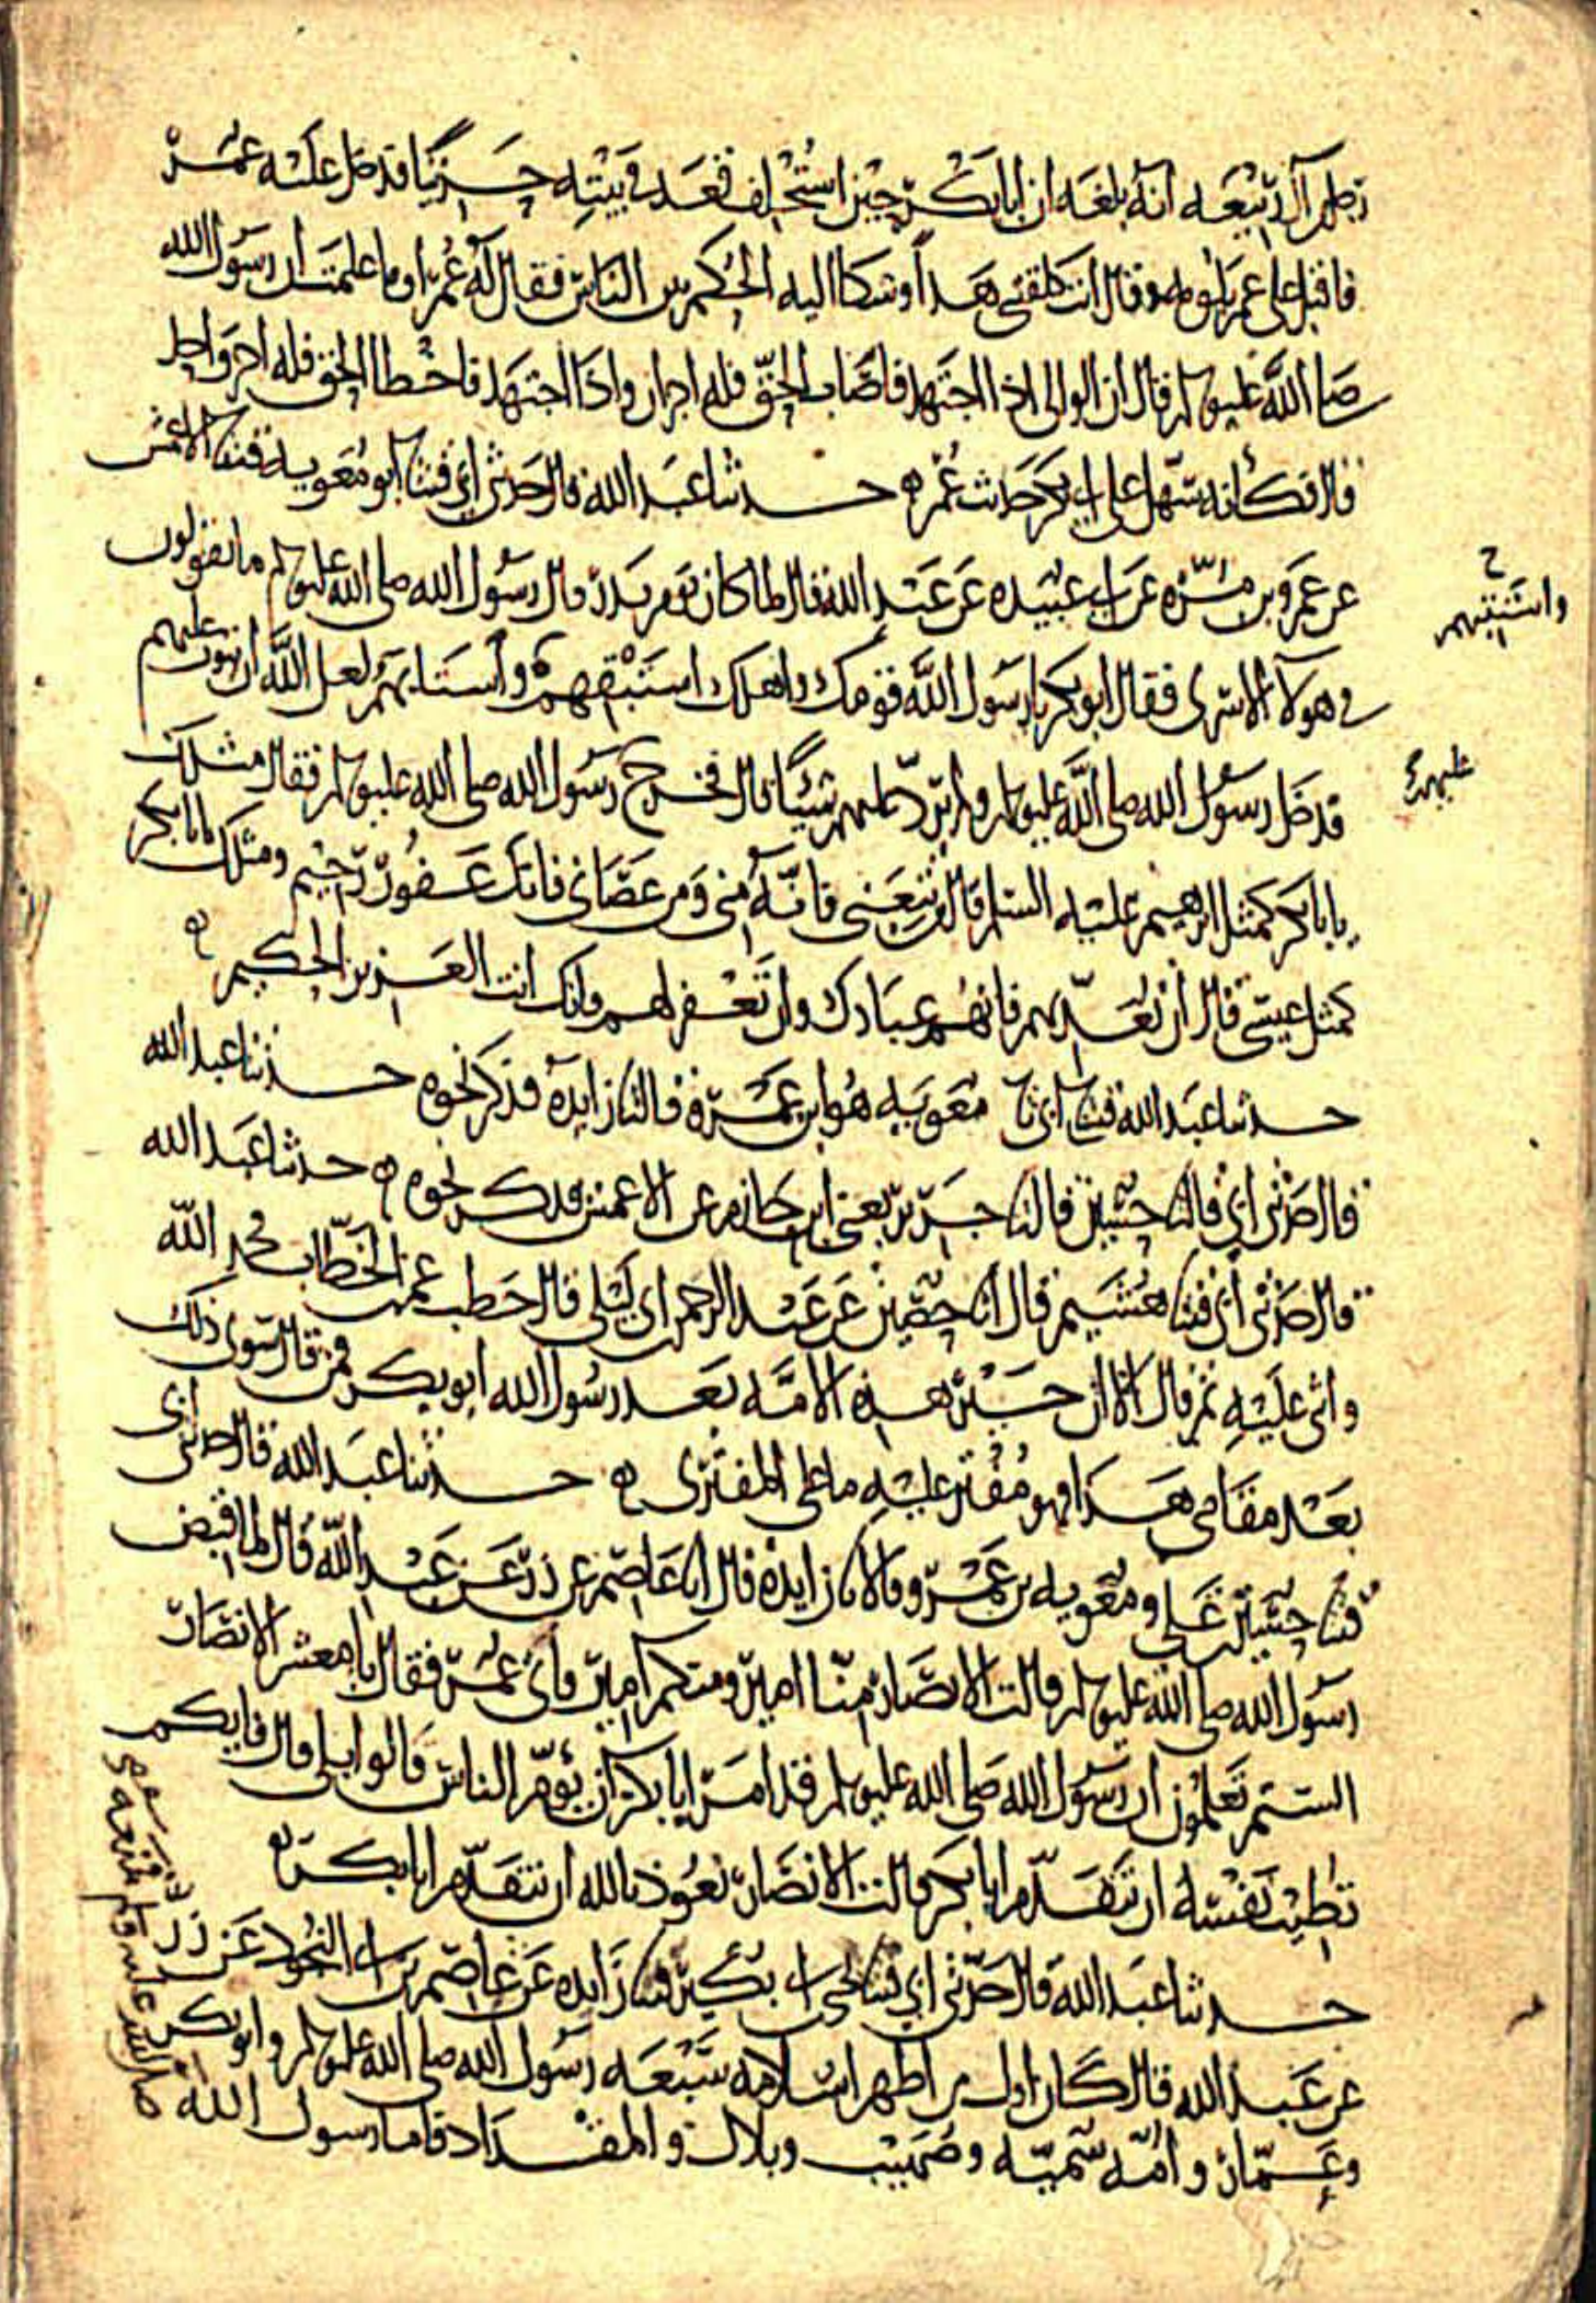 رجل من آل ربيعه انه بلغه ان ابا بكر حين استخلف قعد في بيته حزينا فدخل عليه عمر
فاقبل على عمر يلومه وقال انت كلفتني هذا وشكا اليه الحكم بين الناس فقال له عمر او ما علمت ان رسول الله
صلى الله عليه وسلم قال ان الوالي اذا اجتهد فاصاب الحق فله اجران واذا اجتهد فاخطا الحق فله اجر واحد
قال فكأنه سهل على ابي بكر حديث عمر ه حدثنا عبد الله قال حدثني ابي قثنا ابو معويه قثنا الاعمش
عن عمرو بن مره عن ابي عبيده عن عبد الله قال لما كان يوم بدر قال رسول الله صلى الله عليه وسلم ما تقولون
في هولاء الاسرى فقال ابو بكر يا رسول الله قومك واهلك استبقهم واستتابهم لعل الله ان يتوب عليهم
واستبقهم
فدخل رسول الله صلى الله عليه وسلم ولم يرد عليهم شيئا قال فخرج رسول الله صلى الله عليه وسلم فقال مثلك
عليهم
يابا بكر كمثل ابرهيم عليه السلم قال من تبعني فانه مني ومن عصاني فانك غفور رحيم ومثلك يابا بكر
كمثل عيسى قال ان تعذبهم فانهم عبادك وان تغفر لهم فانك انت العزيز الحكيم ه
حدثنا عبد الله قثنا ابي نا معويه هو ابن عمرو قال نا زايده فذكر نحوه حدثنا عبد الله
قال حدثني ابي قال نا حسين قال نا جرير يعني ابن حازم عن الاعمش فذكر نحوه ه حدثنا عبد الله
قال حدثني ابي قثنا هشيم قال انا حصين عن عبد الرحمن بن ابي ليلى قال خطب عمر بن الخطاب فحمد الله
واثنى عليه ثم قال الا ان خير هذه الامه بعد رسول الله ابو بكر فمن قال سوى ذلك
بعد مقامي هذا فهو مفتر عليه ما على المفتري ه حدثنا عبد الله قال حدثني ابي
قثنا حسين بن علي ومعويه بن عمرو قالا نا زايده قال نا عاصم عن زر عن عبد الله قال لما قبض
رسول الله صلى الله عليه وسلم قالت الانصار منا امير ومنكم امير فاتى عمر فقال يا معشر الانصار
الستم تعلمون ان رسول الله صلى الله عليه وسلم قد امر ابا بكر ان يؤم الناس قالوا بلى قال فايكم
تطيب نفسه ان يتقدم ابا بكر قالت الانصار نعوذ بالله ان نتقدم ابا بكر ه
حدثنا عبد الله قال حدثني ابي قثنا يحيى بن ابي بكير قثنا زايده عن عاصم بن ابي النجود عن زر
عن عبد الله قال كان اول من اظهر اسلامه سبعه رسول الله صلى الله عليه وسلم وابو بكر
وعمار وامه سميه وصهيب وبلال والمقداد فاما رسول الله
صلى الله عليه وسلم فمنعه